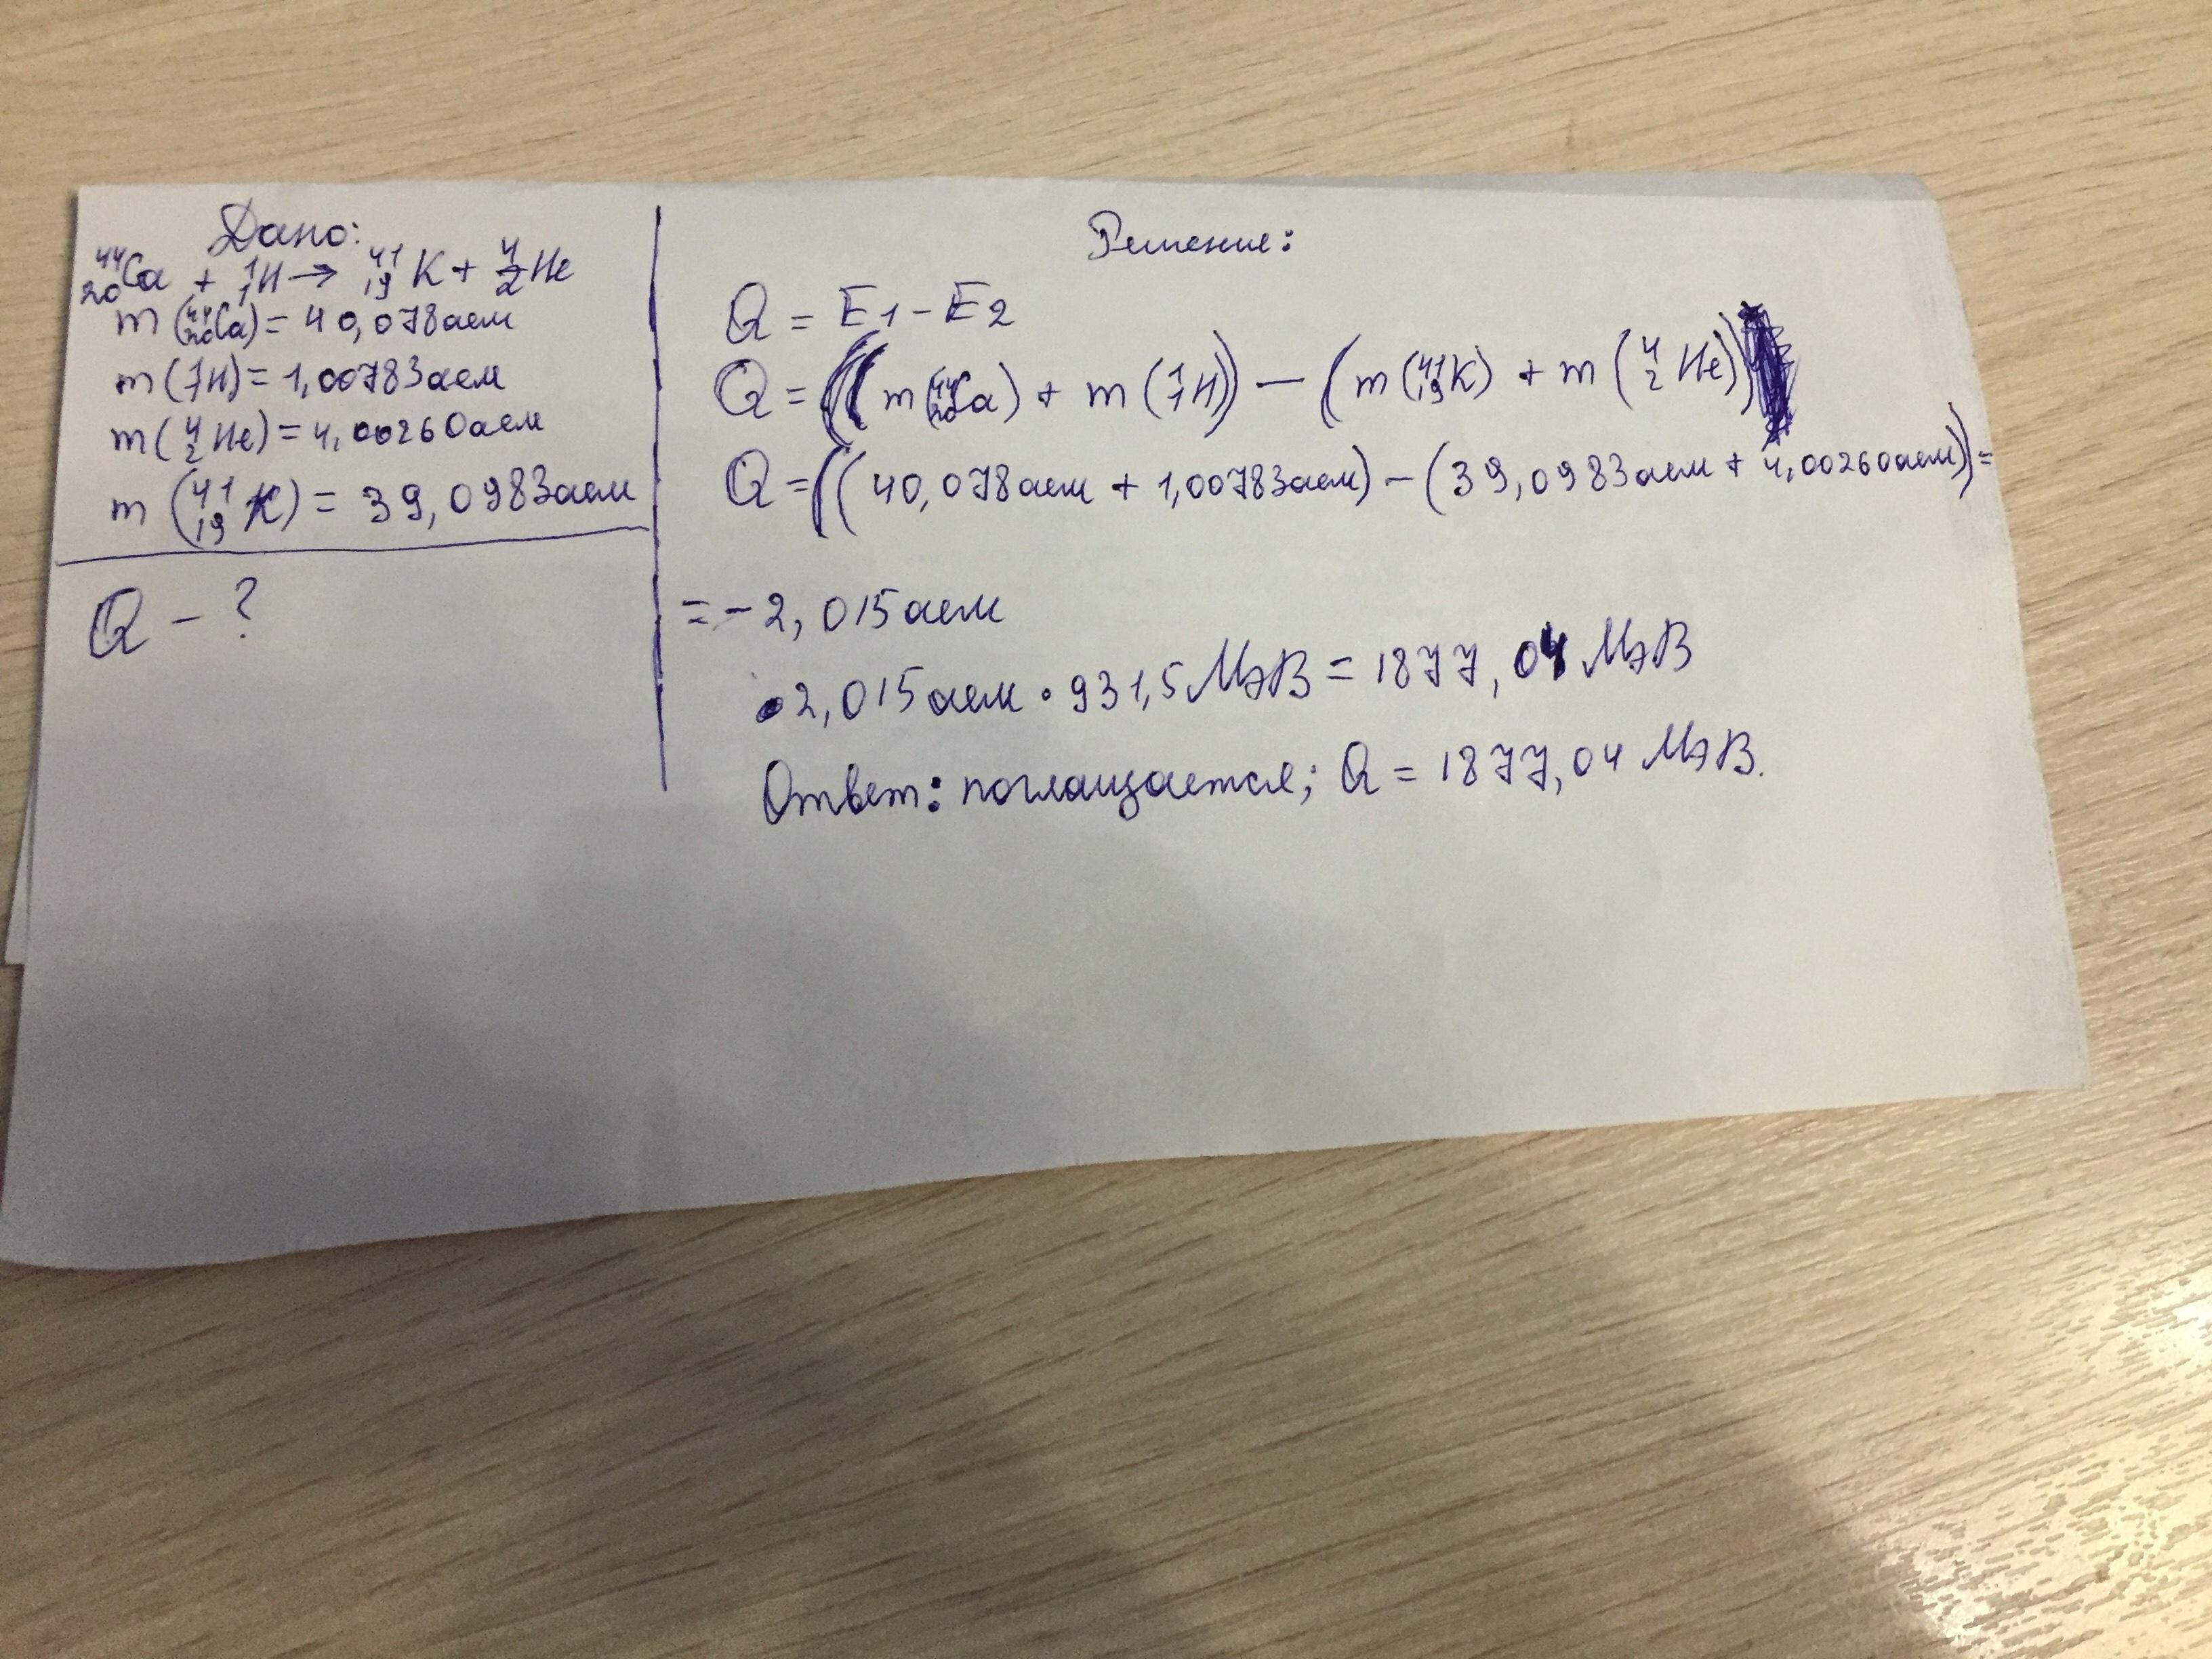 Дано:
⁴⁴₂₀Ca + ¹₁H → ⁴¹₁₉K + ⁴₂He
m (⁴⁴₂₀Ca) = 40,078аем
m (¹₁H) = 1,00783аем
m (⁴₂He) = 4,00260аем
m (⁴¹₁₉K) = 39,0983аем
Q - ?
Решение:
Q = E1 - E2
Q = ((m(⁴⁴₂₀Ca) + m (¹₁H)) — (m (⁴¹₁₉K) + m (⁴₂He))
Q = ((40,078аем + 1,00783аем) - (39,0983аем + 4,00260аем)) =
= - 2,015аем
2,015аем · 931,5 МэВ = 1877,04 МэВ
Ответ: поглащается; Q = 1877,04 МэВ.